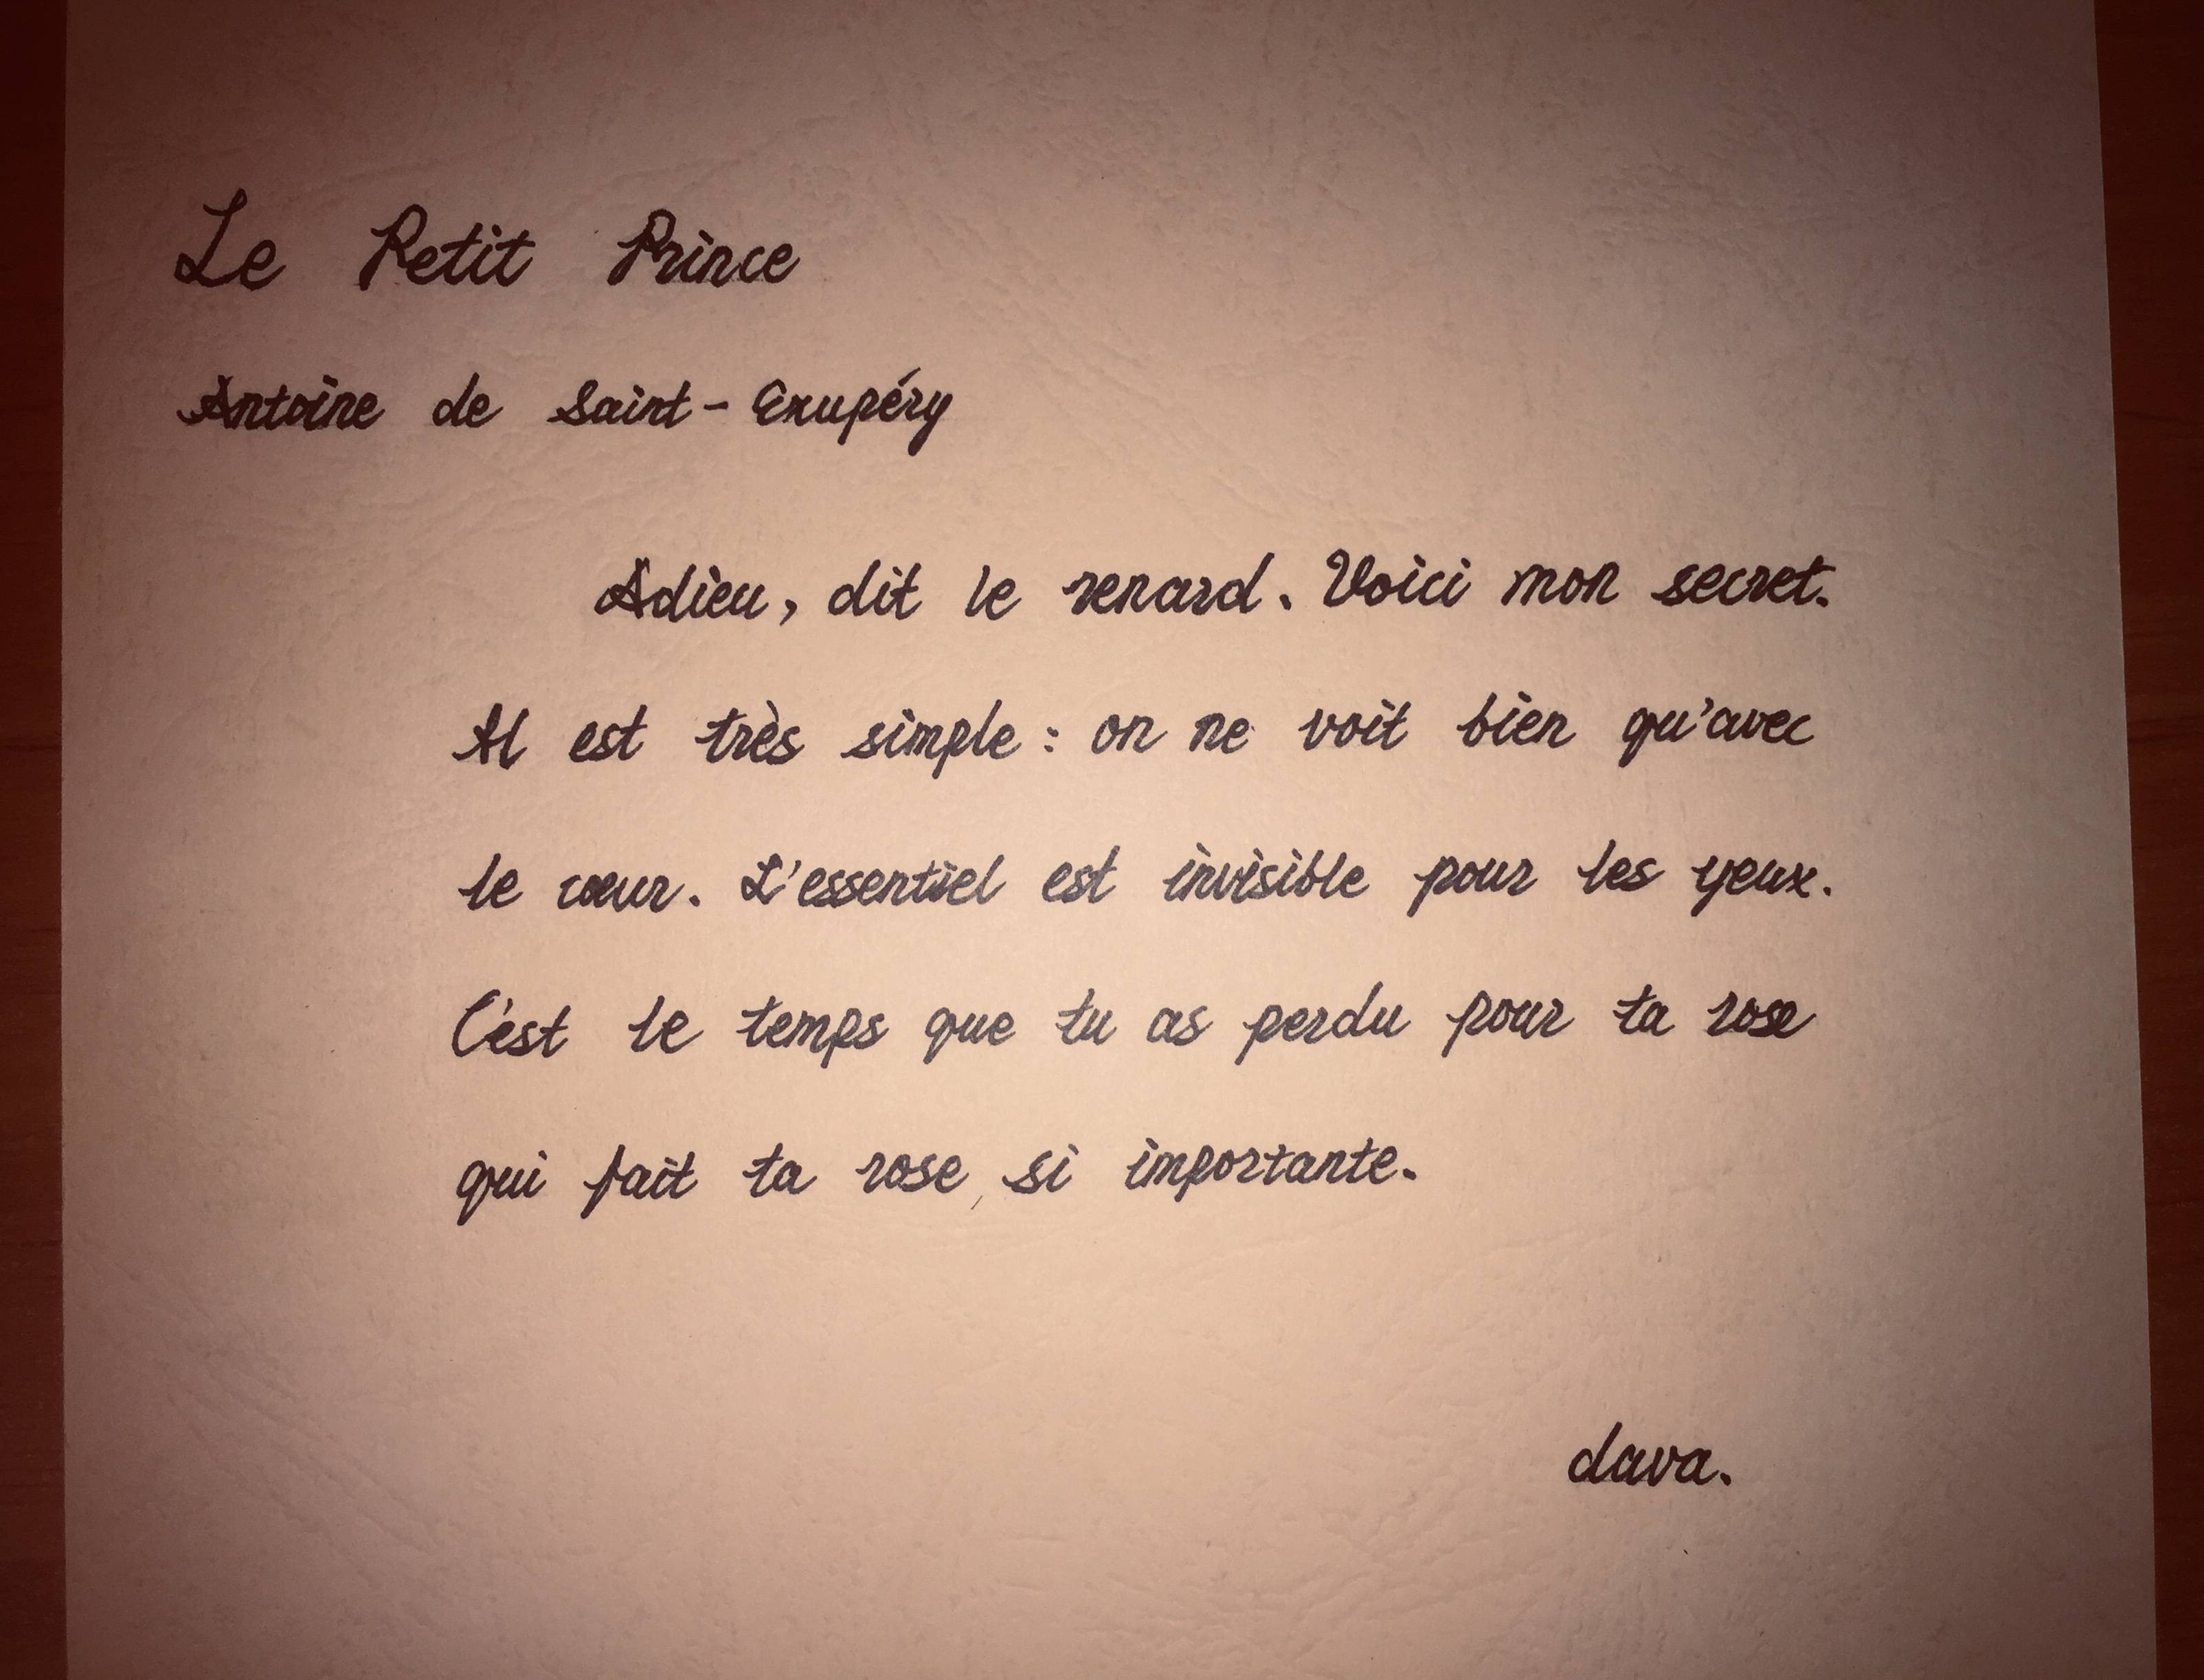 Le Petit Prince
Antoine de Saint-Exupéry
Adieu, dit le renard. Voici mon secret.
Il est très simple : on ne voit bien qu'avec
le cœur. L'essentiel est invisible pour les yeux.
C'est le temps que tu as perdu pour ta rose
qui fait ta rose si importante.
dava.